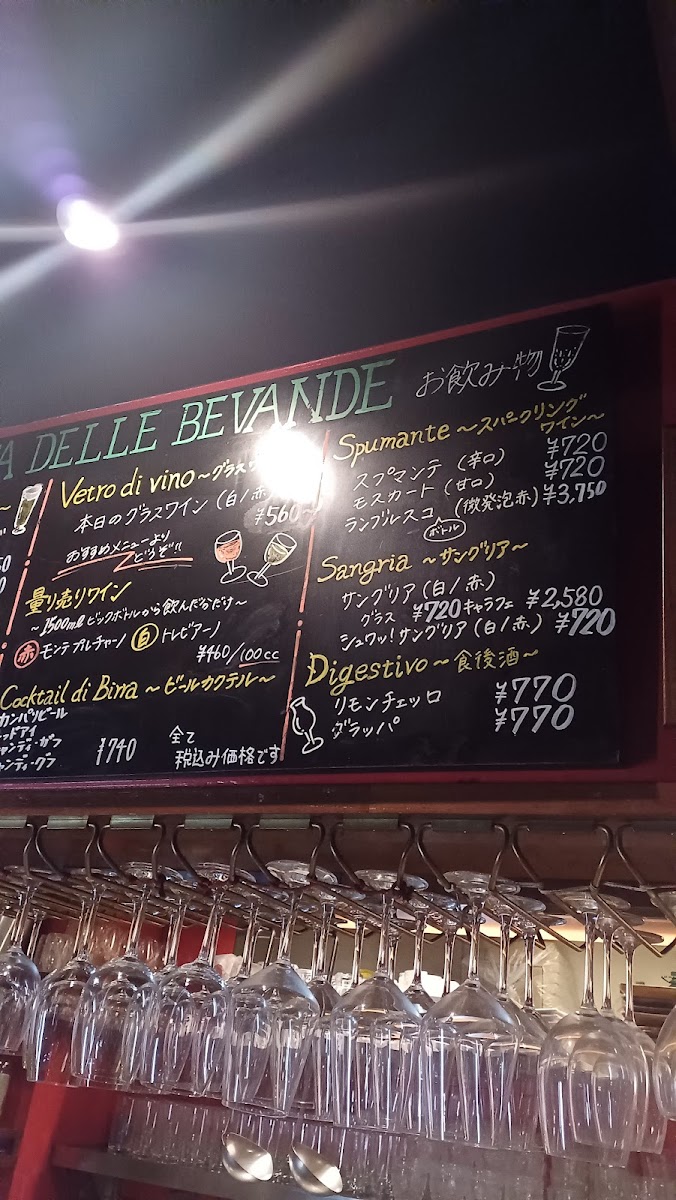 A DELLE BEVANDE お飲み物
Vetro di vino ~グラスワ
本日のグラスワイン (白/赤)
¥560~
おすすめメニューより
どうぞ!!
量り売りワイン
~1500mlビッグボトルから飲んだ分だけ~
赤 モンテプルチャーノ 白 トレビアーノ
¥460/100cc
Cocktail di Birra ~ビールカクテル~
カンパリビール
ッドアイ
ャンディ・ガフ
¥740
全て
税込み価格です
Spumante ~スパークリング
ワイン~
スプマンテ (辛口) ¥720
モスカート (甘口) ¥720
ランブルスコ (微発泡赤) ¥3,750
ボトル
Sangria ~サングリア~
サングリア (白/赤)
グラス ¥720 キャラフェ ¥2,580
シュワッ!サングリア (白/赤) ¥720
Digestivo ~食後酒~
リモンチェッロ ¥770
グラッパ ¥770